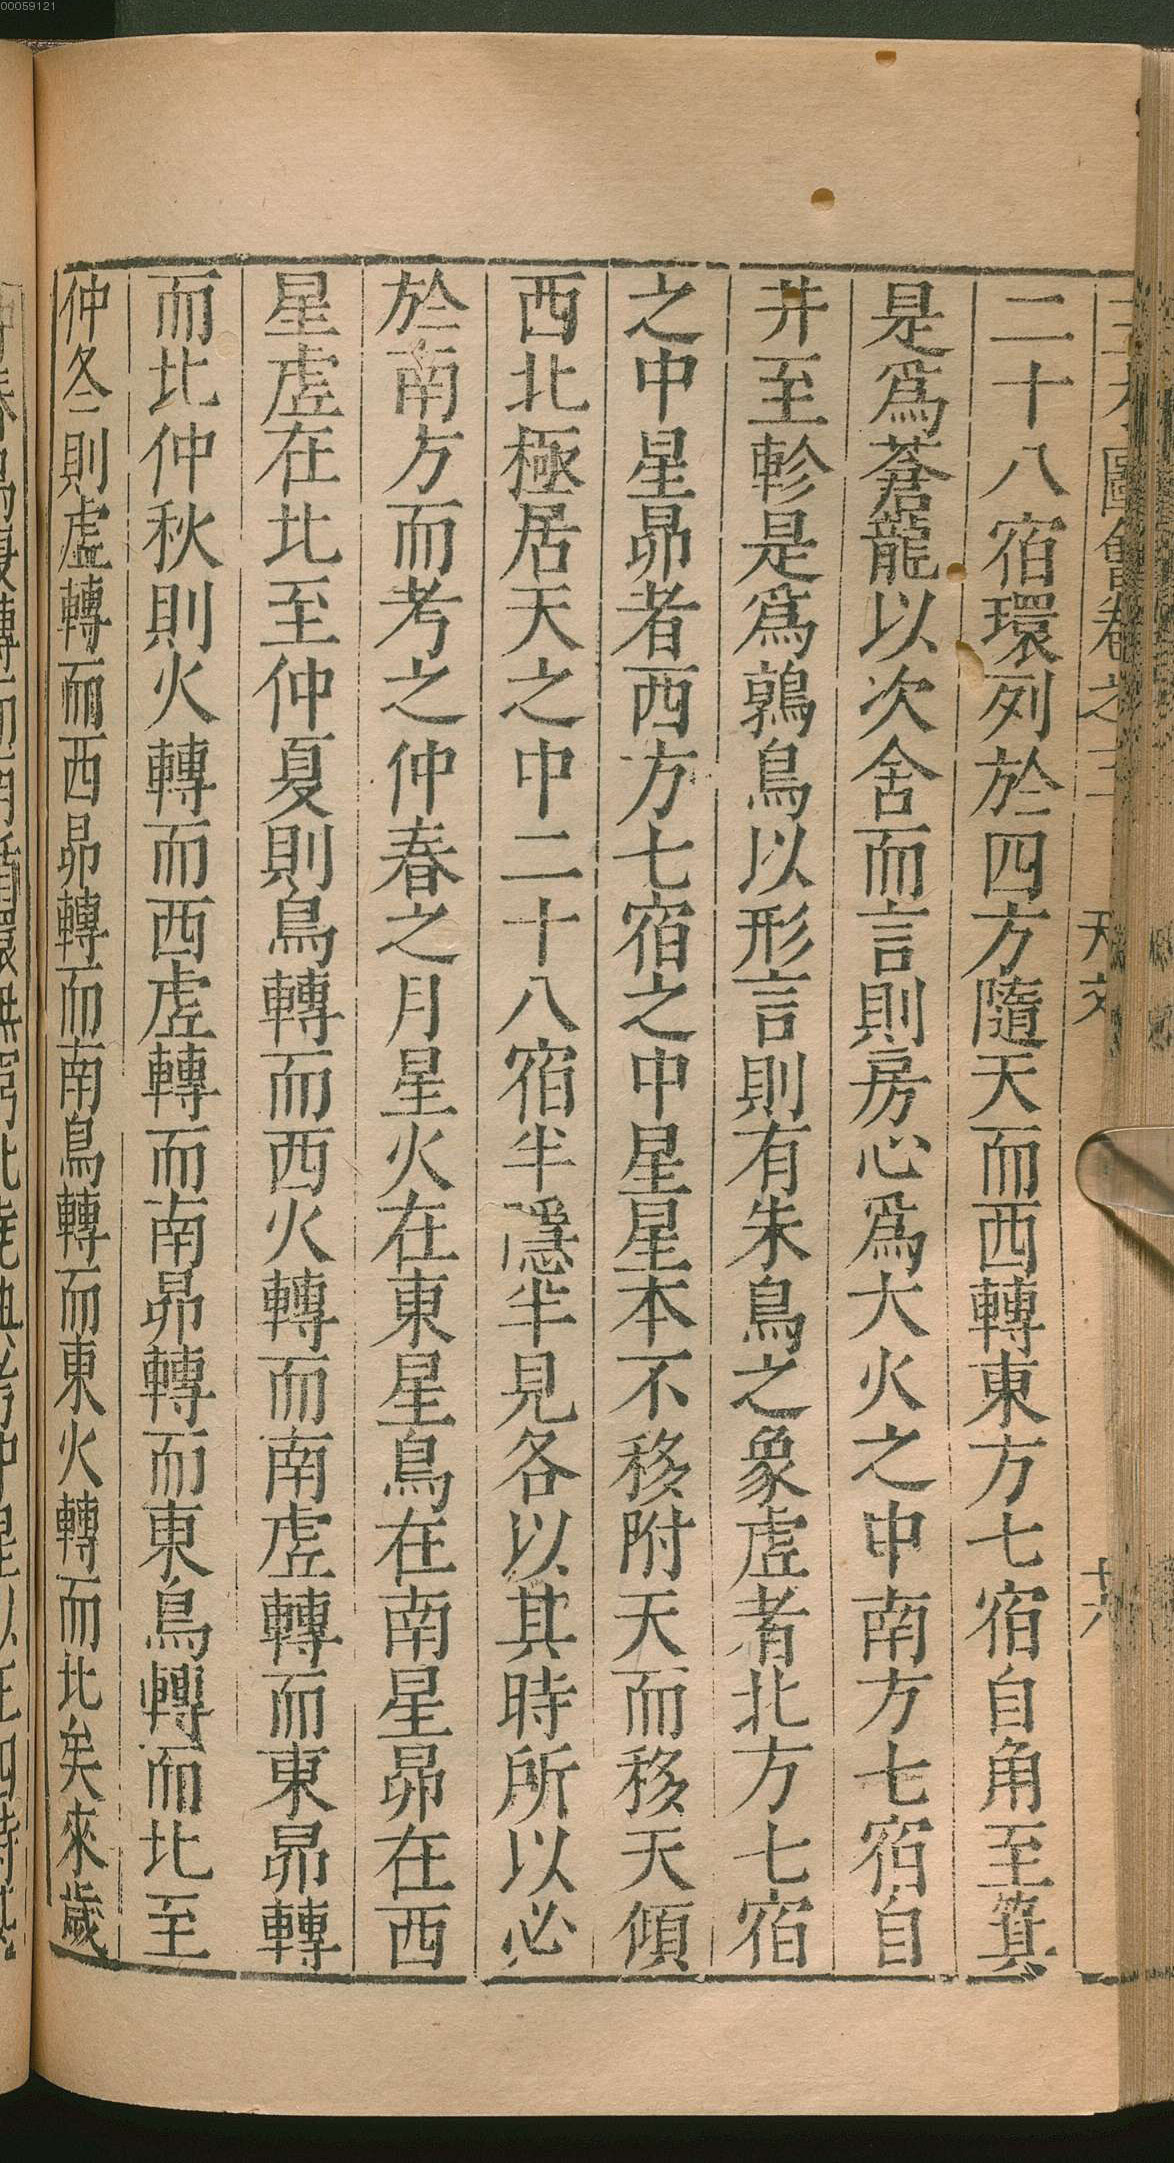 二十八宿環列於四方隨天而西轉東方七宿自角至箕
是爲蒼龍以次舍而言則房心爲大火之中南方七宿自
井至軫是爲鶉鳥以形言則有朱鳥之象虛者北方七宿
之中星昴者西方七宿之中星星本不移附天而移天傾
西北極居天之中二十八宿半隱半見各以其時所以必
於南方而考之仲春之月星火在東星鳥在南星昴在西
星虛在北至仲夏則鳥轉而西火轉而南虛轉而東昴轉
而北仲秋則火轉而西虛轉而南昴轉而東鳥轉而北至
仲冬則虛轉而西昴轉而南鳥轉而東火轉而北矣來歲
00059121